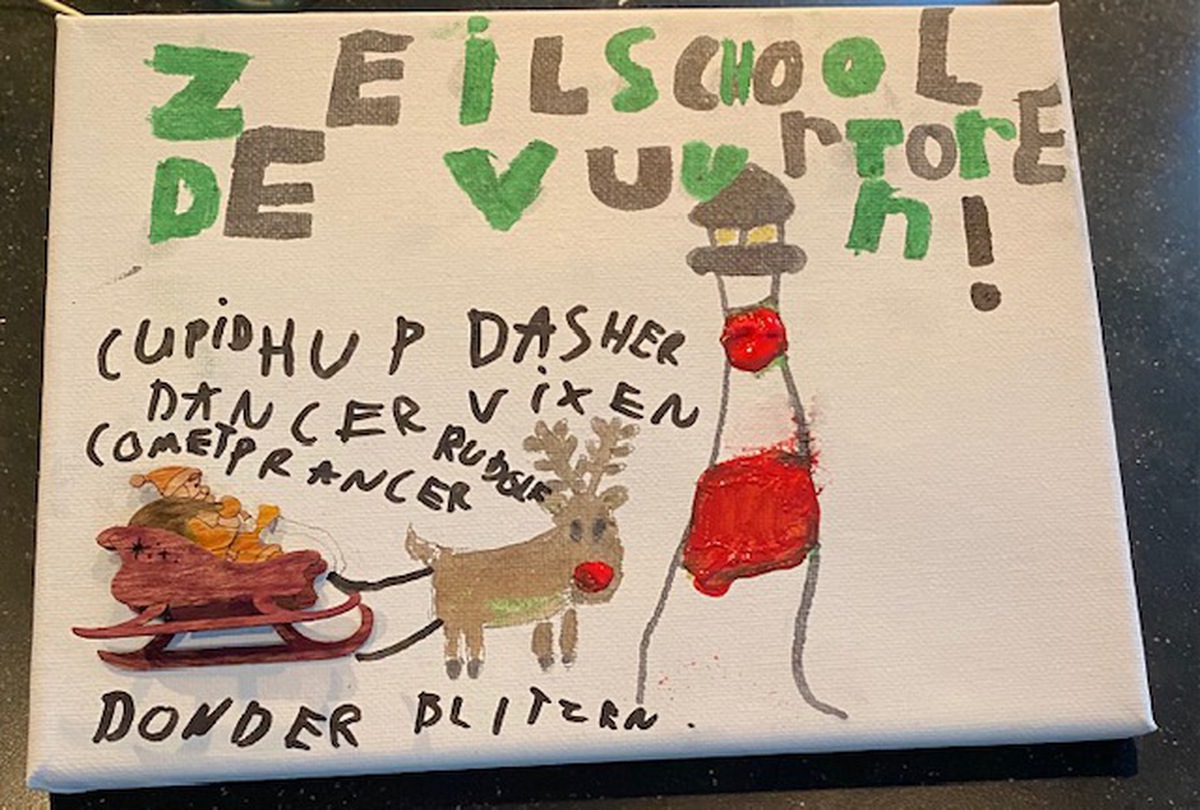 ZEiLSCHOOL
DE VUURTORE
n!
CUPiDHUP DASHER
DANCER ViXEN
COMET PRANCER RUDOLF
DONDER BLITZEN.